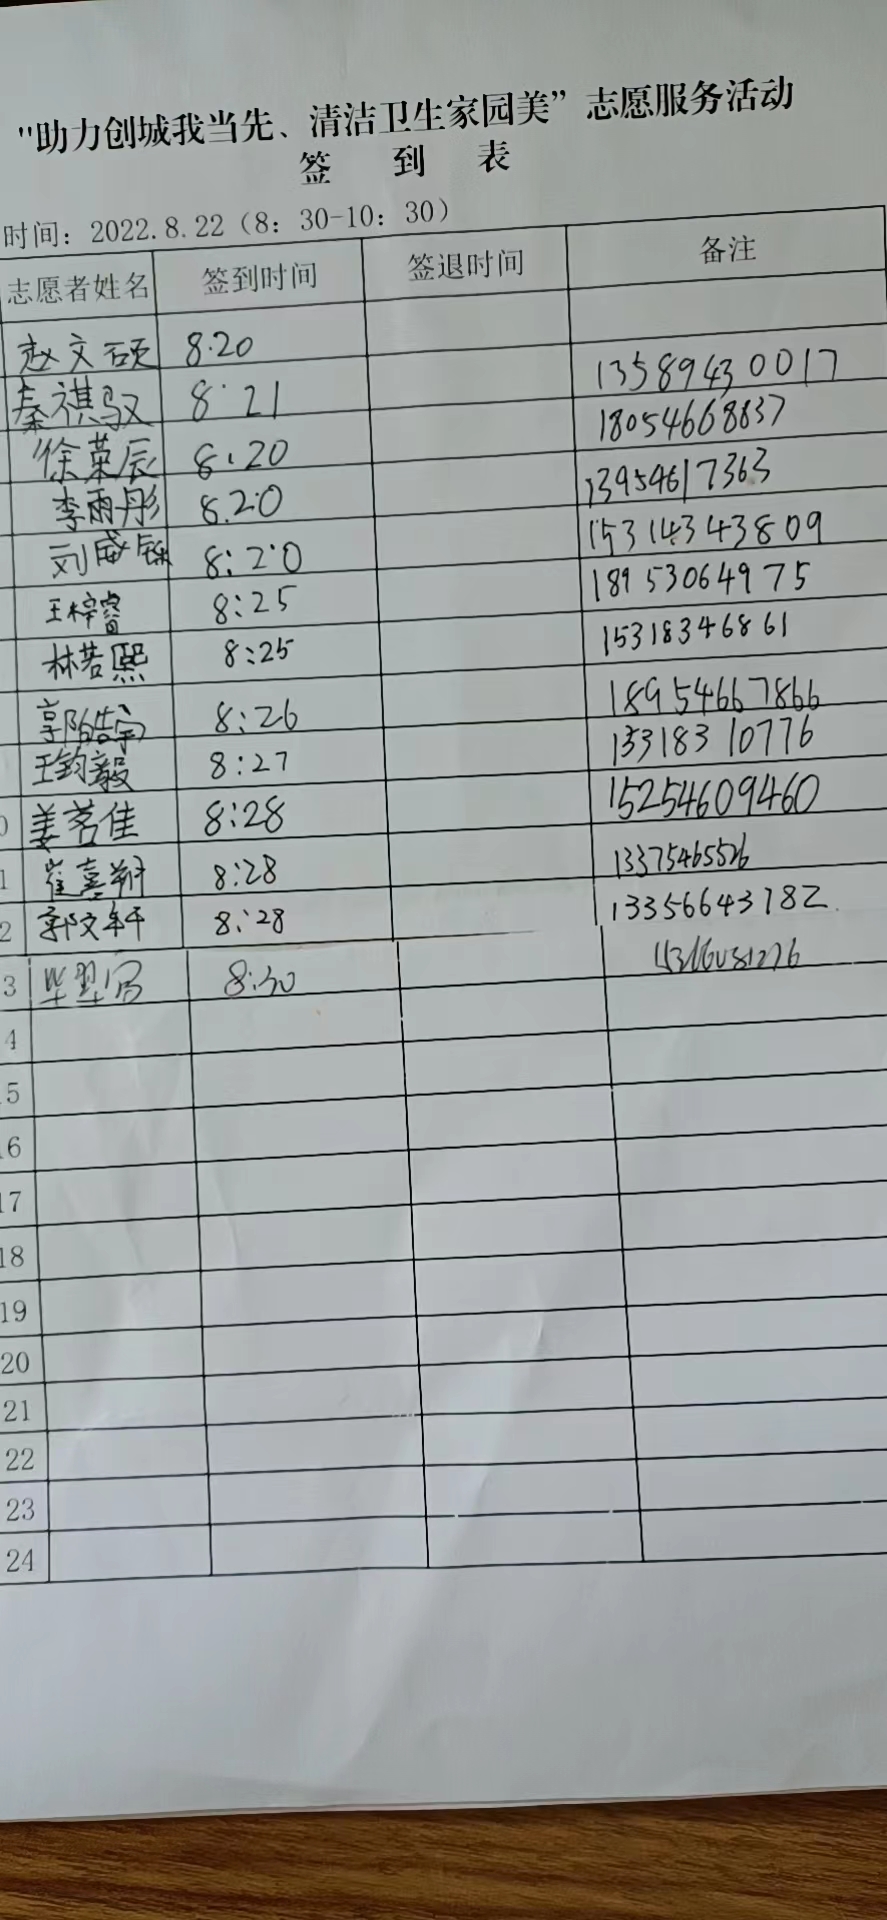 "助力创城我当先、清洁卫生家园美”志愿服务活动
签 到 表
时间：2022.8.22（8：30-10：30）
志愿者姓名 签到时间 签退时间 备注
赵文硕 8:20
秦祺驭 8:21 13589430017
徐荣辰 8:20 18054668837
李雨彤 8:20 13954617363
刘威铄 8:20 15314343809
王梓睿 8:25 18953064975
林若熙 8:25 15318346861
郭皓宇 8:26 18954667866
王钧毅 8:27 15318310776
0 姜茗佳 8:28 15254609460
1 崔嘉翔 8:28 13375465526
2 郭文轩 8:28 13356643782
3 8:30
4
15
16
17
18
19
20
21
22
23
24